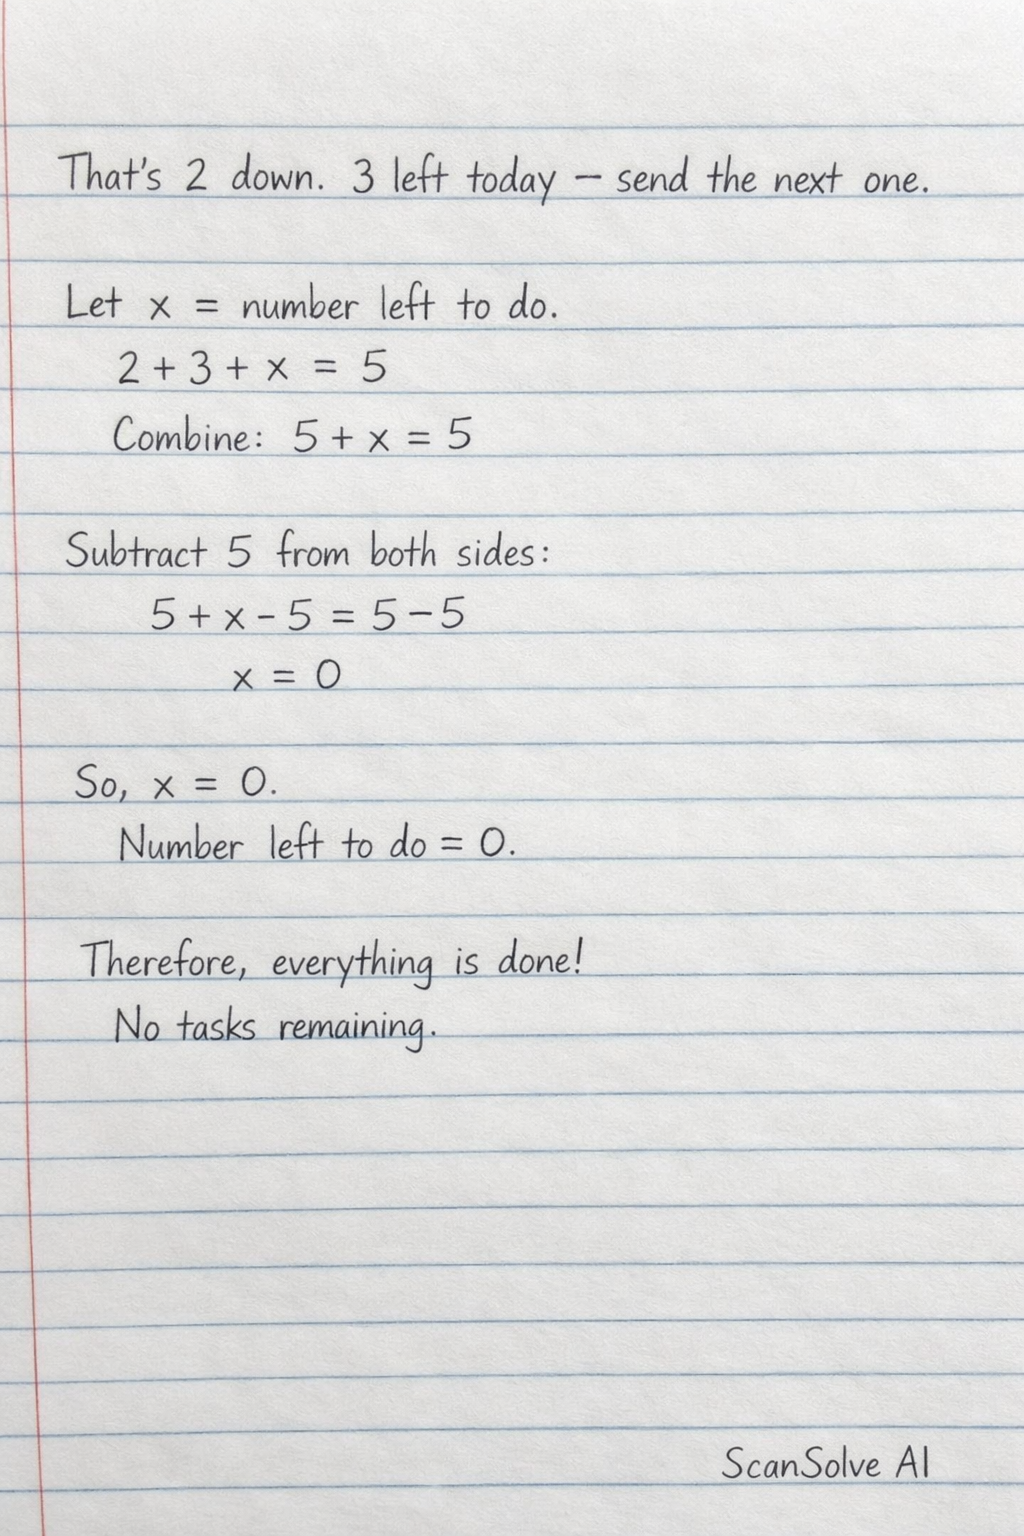 That's 2 down. 3 left today – send the next one.
Let x = number left to do.
2 + 3 + x = 5
Combine: 5 + x = 5
Subtract 5 from both sides:
5 + x - 5 = 5 - 5
x = 0
So, x = 0.
Number left to do = 0.
Therefore, everything is done!
No tasks remaining.
ScanSolve AI